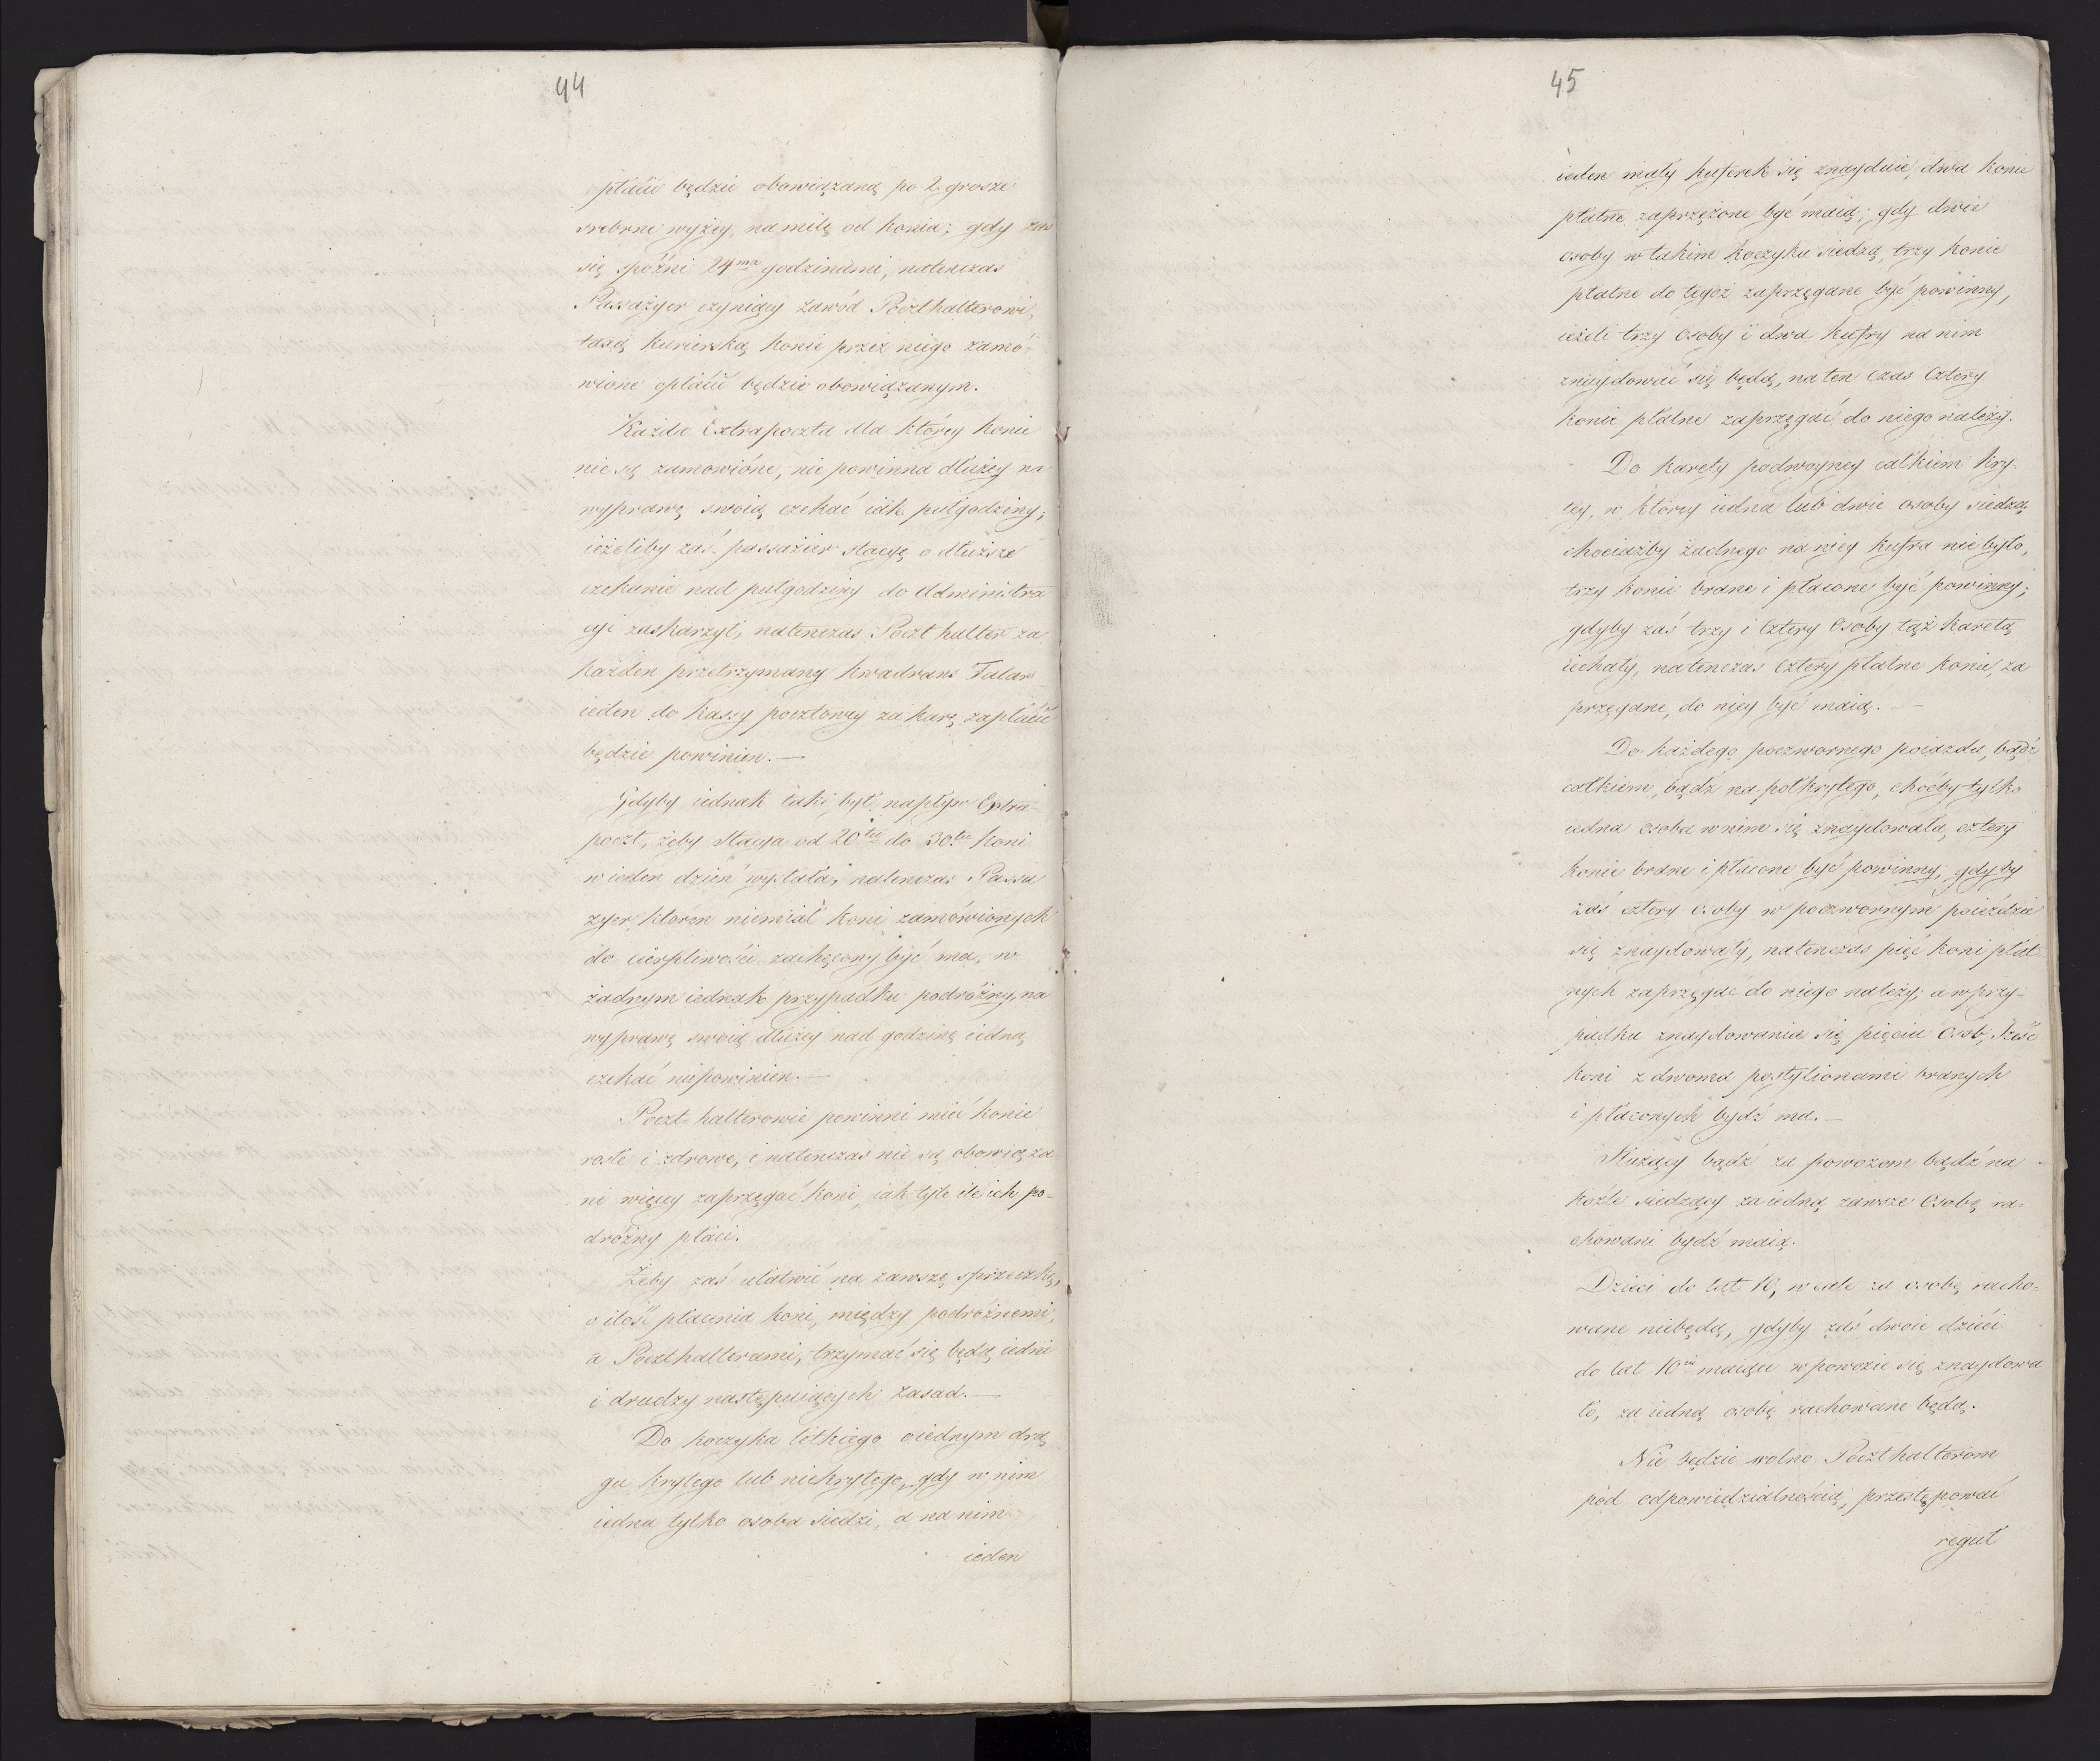 44
płacić będzie obowiązaną po 2. grosze
srebrne wyżey, na milę od konia; gdy zas
się spóźni 24ma godzinami, natenczas
Passażyer czyniący zawód Poczthalterowi,
taxą kurierską konie przez niego zamó-
wione opłacić będzie obowiązanym.
Każda Extrapoczta dla którey konie
nie są zamowióne, nie powinna dłużey na
wyprawę swoią czekać iak pułgodziny;
ieżeliby zaś passażier stacyę o dłuższe
czekanie nad pułgodziny do Administra
cyi zaskarzył, natenczas Poczthalter za
każden przetrzymany kwadrans Talar
ieden do Kassy pocztowey za karę zapłacić
będzie powinien.—
Gdyby iednak taki był napływ Extra-
poczt, żeby Stacya od 20tu do 30tu koni
w ieden dzień wysłała, natenczas Passa
żyer któren niemiał koni zamówionych
do cierpliwości zachęcony być ma, w
żadnym iednak przypadku podróżny, na
wyprawę swoię dłużey nad godzinę iedną
czekać niepowinien.—
Poczt-halterowie powinni mieć konie
rosłe i zdrowe, i natenczas nie są obowiąza
ni więcey zaprzęgać koni, iak tyle ile ich po-
dróżny płaci.
Żeby zaś ułatwić na zawszę sprzeczkę,
o ilość płacenia koni, między podróżnemi,
a Poczthalterami, trzymać się będą iedni
i drudzy następuiących zasad.—
Do koczyka letkiego o iednym drą
gu krytego lub niekrytego, gdy w nim
iedna tylko osoba siedzi, a na nim
ieden
45
ieden mały kuferek się znayduie, dwa konie
płatne zaprzężone być maią; gdy dwie
osoby w takim koczyku siedzą, trzy konie
płatne do tegoż zaprzęgane być powinny,
ieżeli trzy osoby i dwa kufry na nim
znaydować się będą, na ten czas cztery
konie płatne zaprzęgać do niego należy.
Do karety podwoyney całkiem kry-
tey, w którey iedna lub dwie osoby siedzą
chociażby żadnego na niey kufra nie było,
trzy konie brane i płacone być powinny;
gdyby zaś trzy i cztery Osoby tąż karetą
iechały, natenczas cztery płatne konie, za
przęgane, do niey być maią.—
Do każdego poczwornego poiazdu, bądź
całkiem, bądź na połkrytego, choćby tylko
iedna osoba w nim się znaydowała, cztery
konie brane i płacone być powinny, gdyby
zaś cztery osoby w poczwornym poieździe
się znaydowały, natenczas pięć koni płat-
nych zaprzęgać do niego należy; a w przy-
padku znaydowania się pięciu Osób, sześć
koni z dwoma postylionami branych
i płaconych bydź ma.—
Służący bądź za powozem bądź na
koźle siedzący za iedną zawsze Osobę ra-
chowani bydź maią.
Dzieci do lat 10, wcale za osobę racho-
wane niebędą, gdyby zaś dwoie dzieci
do lat 10iu maiące w powozie się znaydowa
ło, za iedną osobę rachowane będą.
Nie będzie wolno Poczthalterom
pod odpowiedzialnością, przestępować
reguł